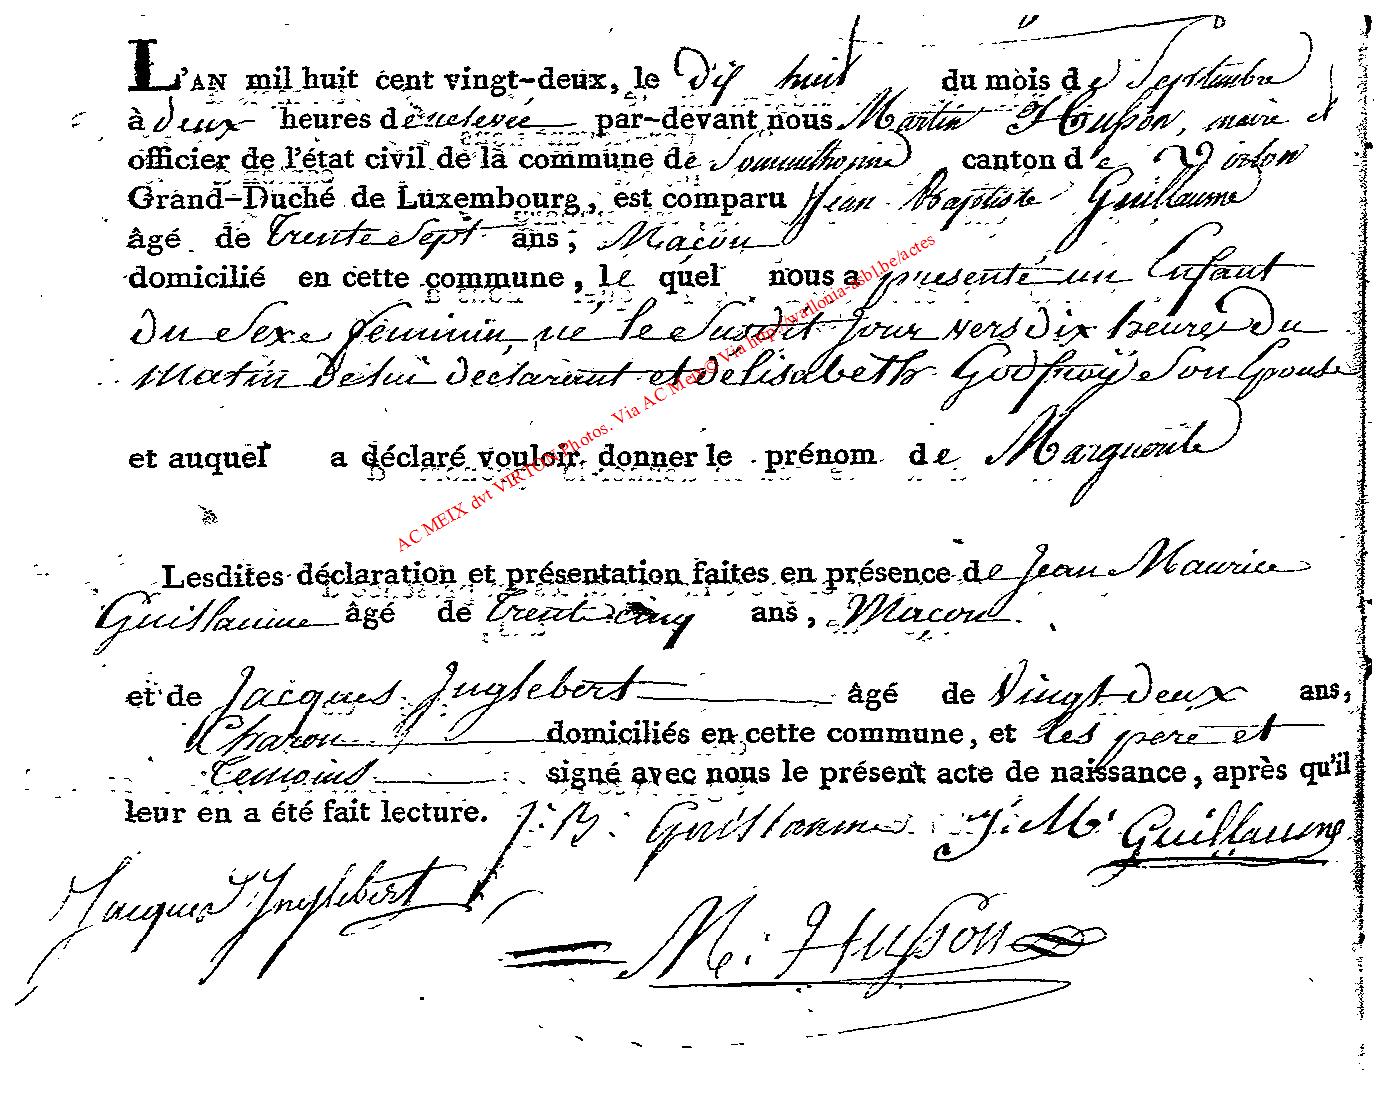 L'AN mil huit cent vingt-deux, le Dix huit du mois de Septembre
à deux heures de relevée par-devant nous Martin Husson, maire et
officier de l'état civil de la commune de Sommethonne canton de Virton
Grand-Duché de Luxembourg, est comparu Jean Baptiste Guillaume
âgé de trente Sept ans, Maçon
domicilié en cette commune, le quel nous a presenté un Enfant
Du Sexe feminin, né le Susdit Jour vers dix heures Du
Matin De lui declarant et d'elisabeth Godfroÿ Son Epouse
et auquel a déclaré vouloir donner le prénom de Marguerite
AC MEIX dvt VIRTON Photos. Via AC Meix© Via http://wallonia-asbl.be/actes
Lesdites déclaration et présentation faites en présence de Jean Maurice
Guillaume âgé de trente cinq ans, Maçon
et de Jacques Inglebert âgé de Vingt deux ans,
Charon domiciliés en cette commune, et les pere et
temoins signé avec nous le présent acte de naissance, après qu'il
leur en a été fait lecture. J: B: Guillaume J: M: Guillaume
Jacques Inglebert
M: Husson